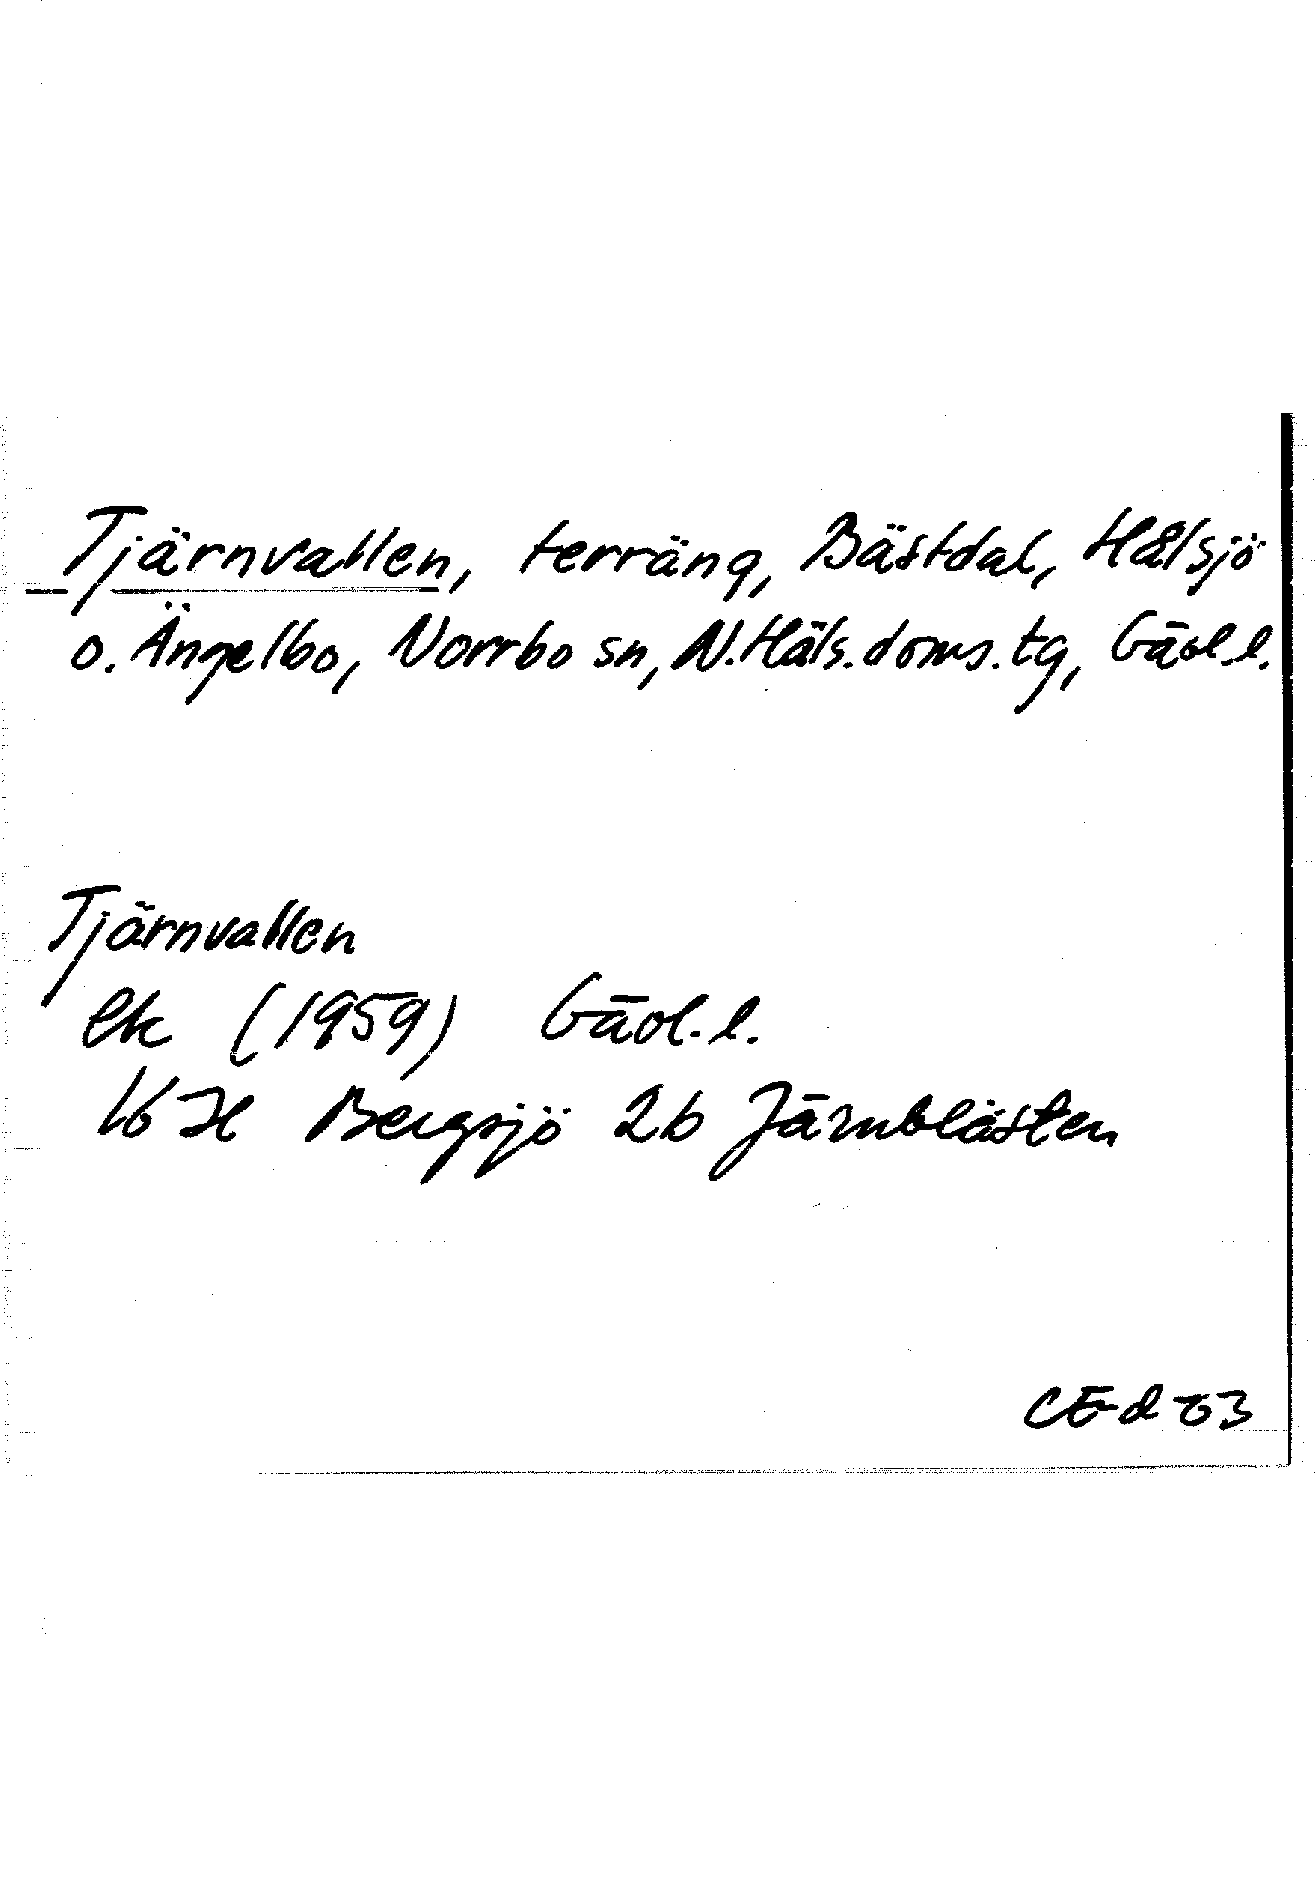 Tjärnvallen, terräng, Bästdal, Hålsjö
o. Ängelbo, Norrbo sn, N. Häls. doms. tg, Gävl. l.
Tjärnvallen
Ek (1959) Gävl. l.
16 H Bergsjö 2b Järnblästen
CE-d 63